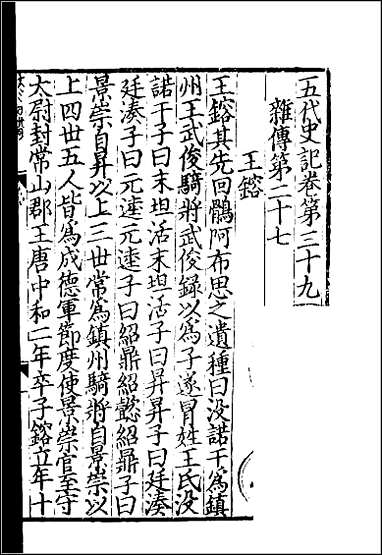 五代史記卷第三十九
雜傳第二十七
王鎔
王鎔其先回鶻阿布思之遺種曰没諾干爲鎮
州王武俊騎將武俊錄以爲子遂冒姓王氏没
諾干子曰末坦活末坦活子曰昇昇子曰廷湊
廷湊子曰元逵元逵子曰紹鼎紹懿紹鼎子曰
景崇自昇以上三世常爲鎮州騎將自景崇以
上四世五人皆爲成德軍節度使景崇官至守
太尉封常山郡王唐中和二年卒子鎔立年十